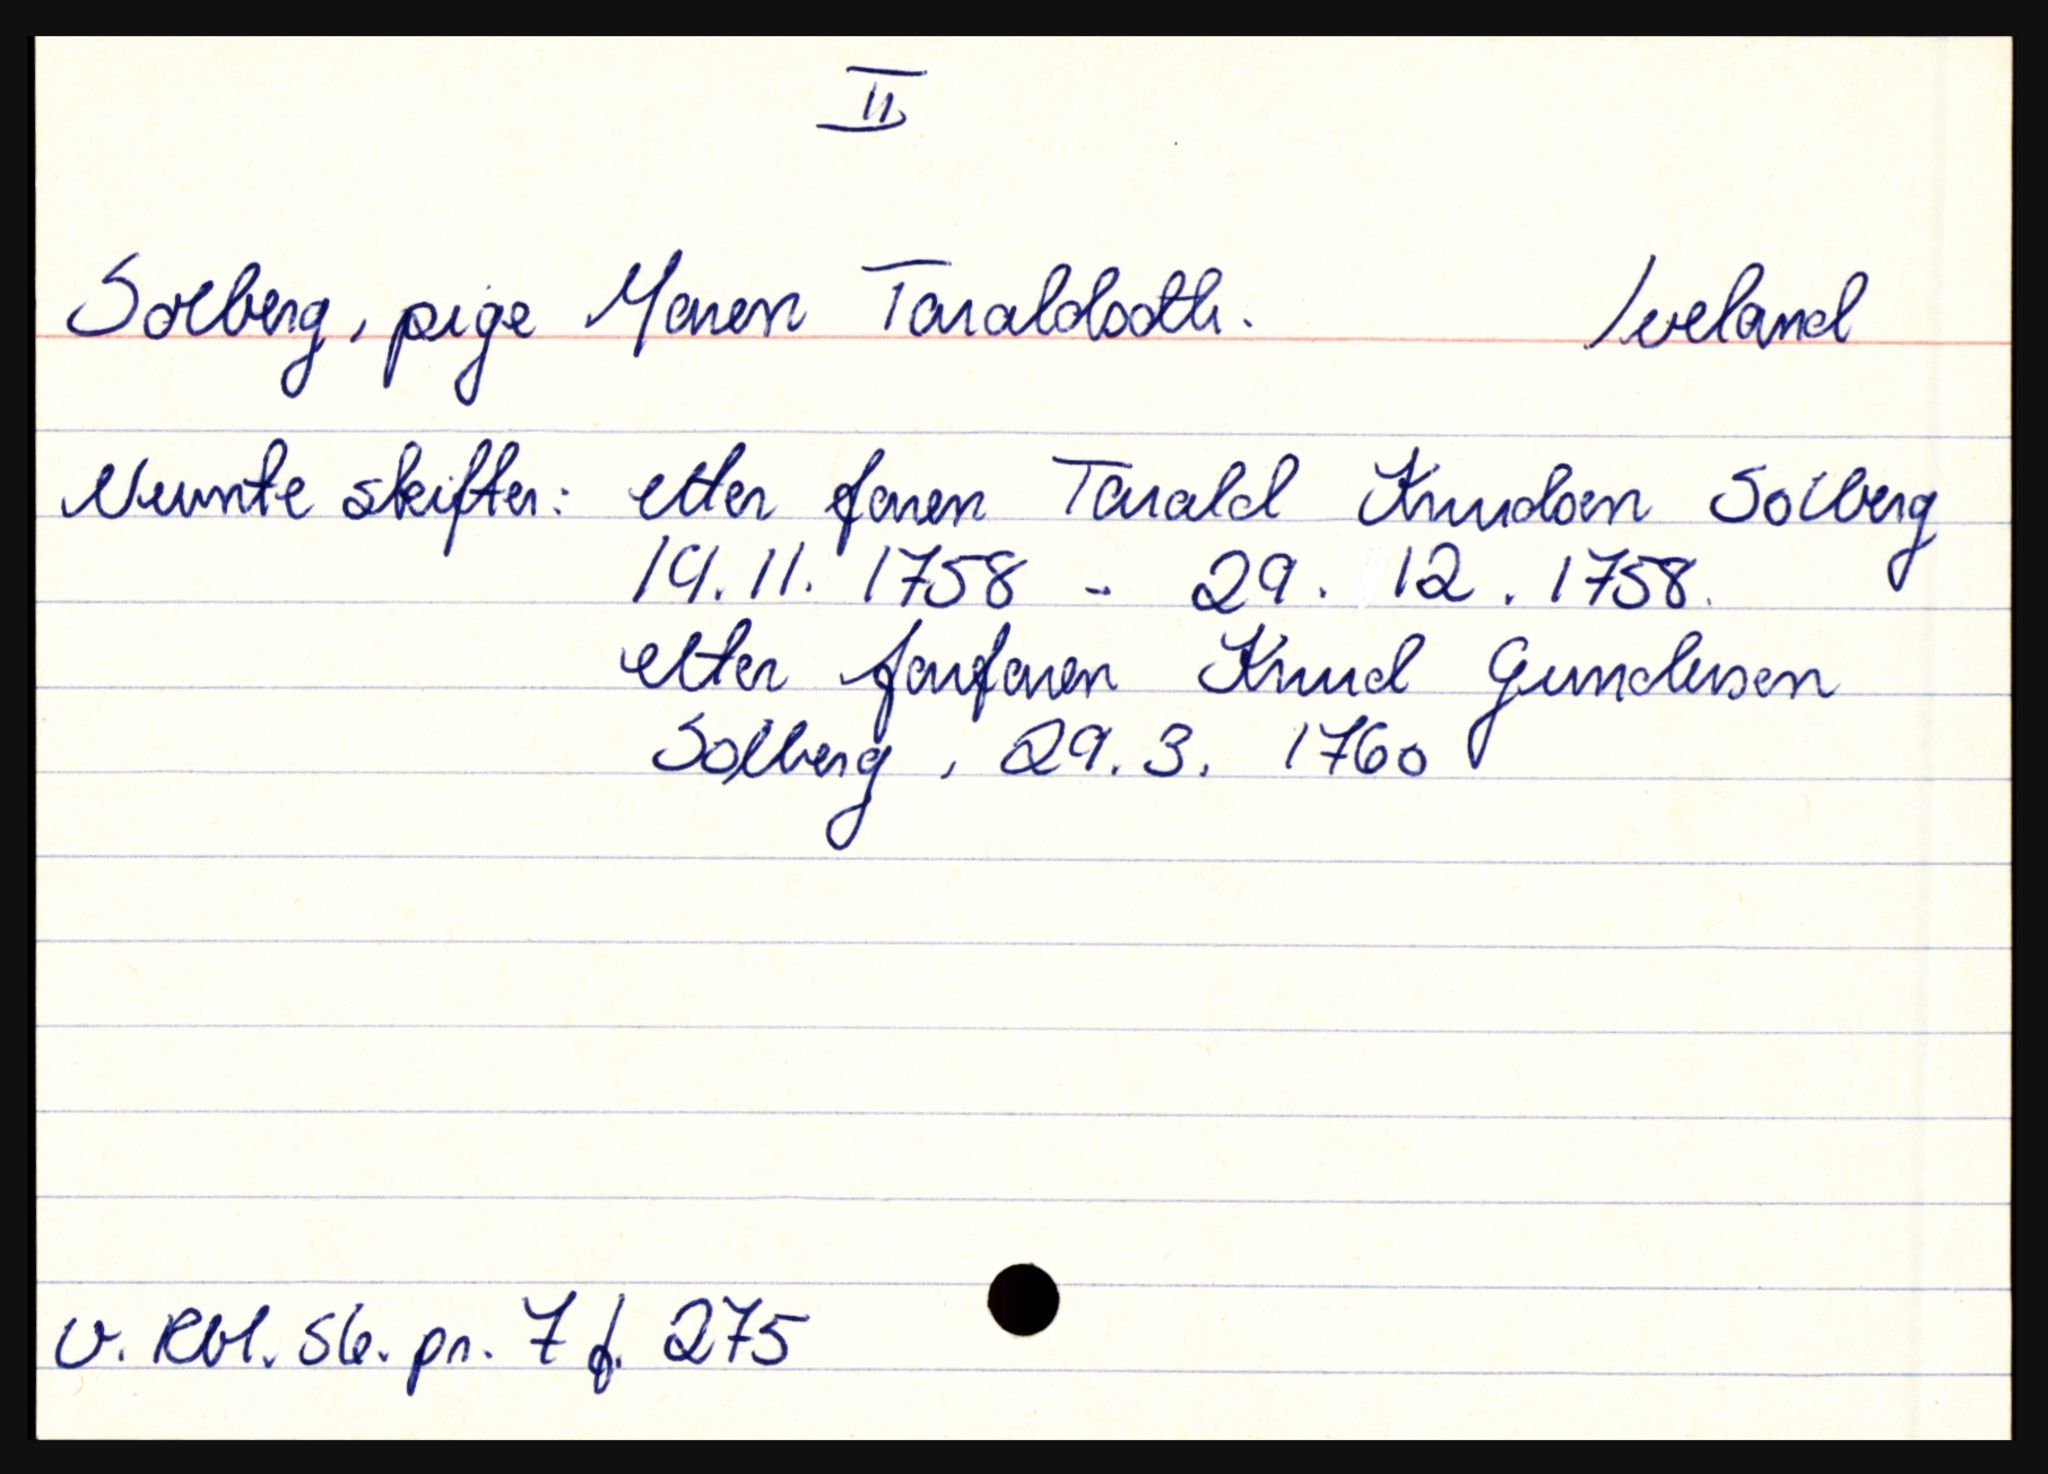 II
Solberg, pige Maren Taraldsdtr. Iveland
Nevnte skifter: etter faren Tarald Knudsen Solberg
14.11.1758 - 29.12.1758.
etter farfaren Knud Gundersen
Solberg, 29.3.1760
V. Rbl. Sk. pr. 7 f. 275